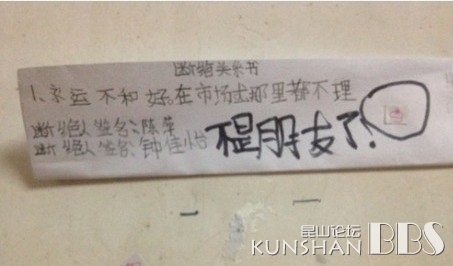 断绝关系书
1、永远不和好,在市场或那里都不理
断绝人签名:陈莹
断绝人签名:钟佳怡
不是朋友了!
昆山论坛
KUNSHAN BBS